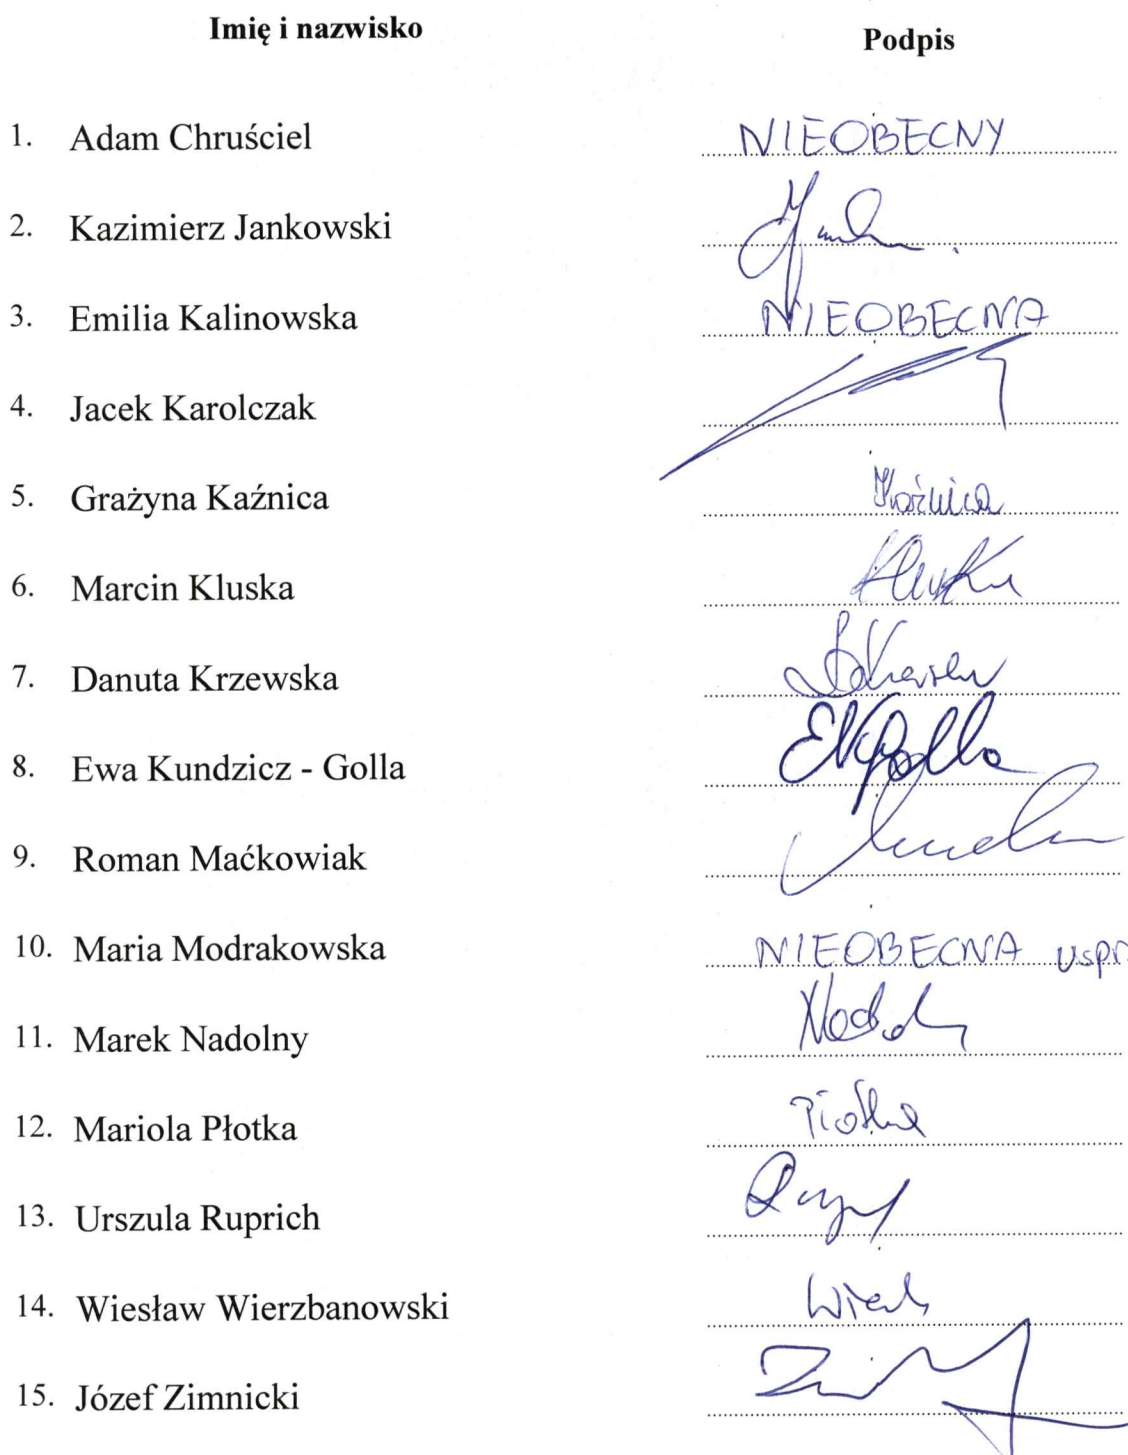 Imię i nazwisko Podpis
1. Adam Chruściel NIEOBECNY
2. Kazimierz Jankowski
3. Emilia Kalinowska NIEOBECNA
4. Jacek Karolczak
5. Grażyna Kaźnica Kaźnica
6. Marcin Kluska Kluska
7. Danuta Krzewska
8. Ewa Kundzicz - Golla EKGolla
9. Roman Maćkowiak
10. Maria Modrakowska NIEOBECNA uspr.
11. Marek Nadolny
12. Mariola Płotka Płotka
13. Urszula Ruprich
14. Wiesław Wierzbanowski
15. Józef Zimnicki